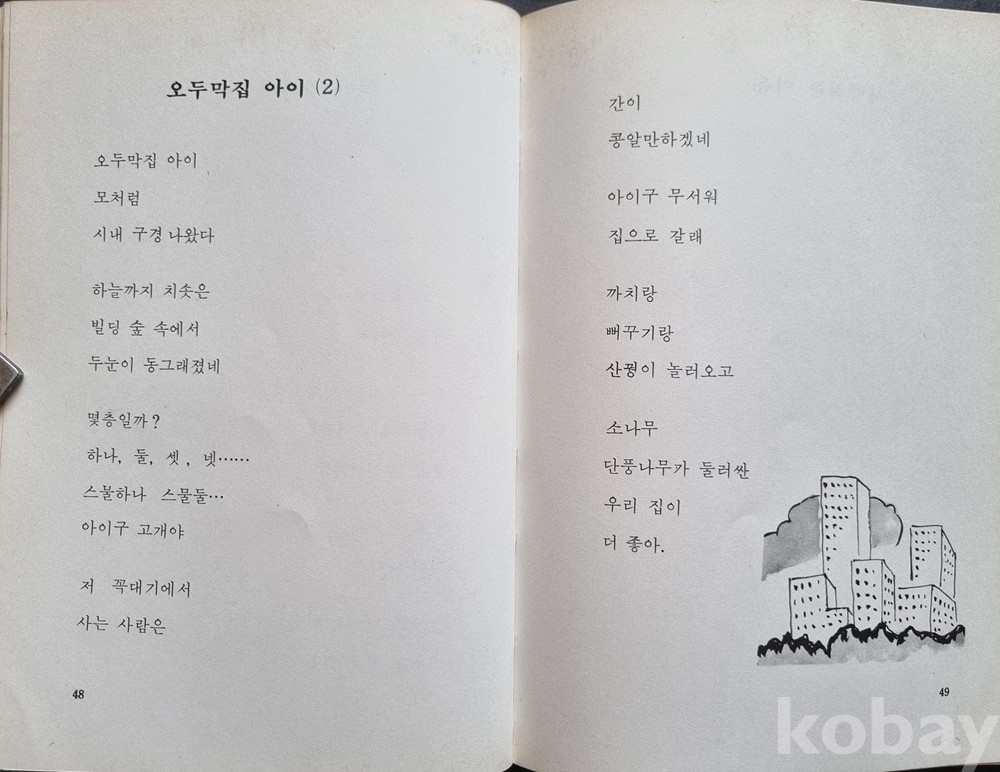 오두막집 아이 (2)
오두막집 아이
모처럼
시내 구경 나왔다
하늘까지 치솟은
빌딩 숲 속에서
두눈이 동그래졌네
몇층일까?
하나, 둘, 셋, 넷……
스물하나 스물둘…
아이구 고개야
저 꼭대기에서
사는 사람은
48
간이
콩알만하겠네
아이구 무서워
집으로 갈래
까치랑
뻐꾸기랑
산꿩이 놀러오고
소나무
단풍나무가 둘러싼
우리 집이
더 좋아.
49
kobay